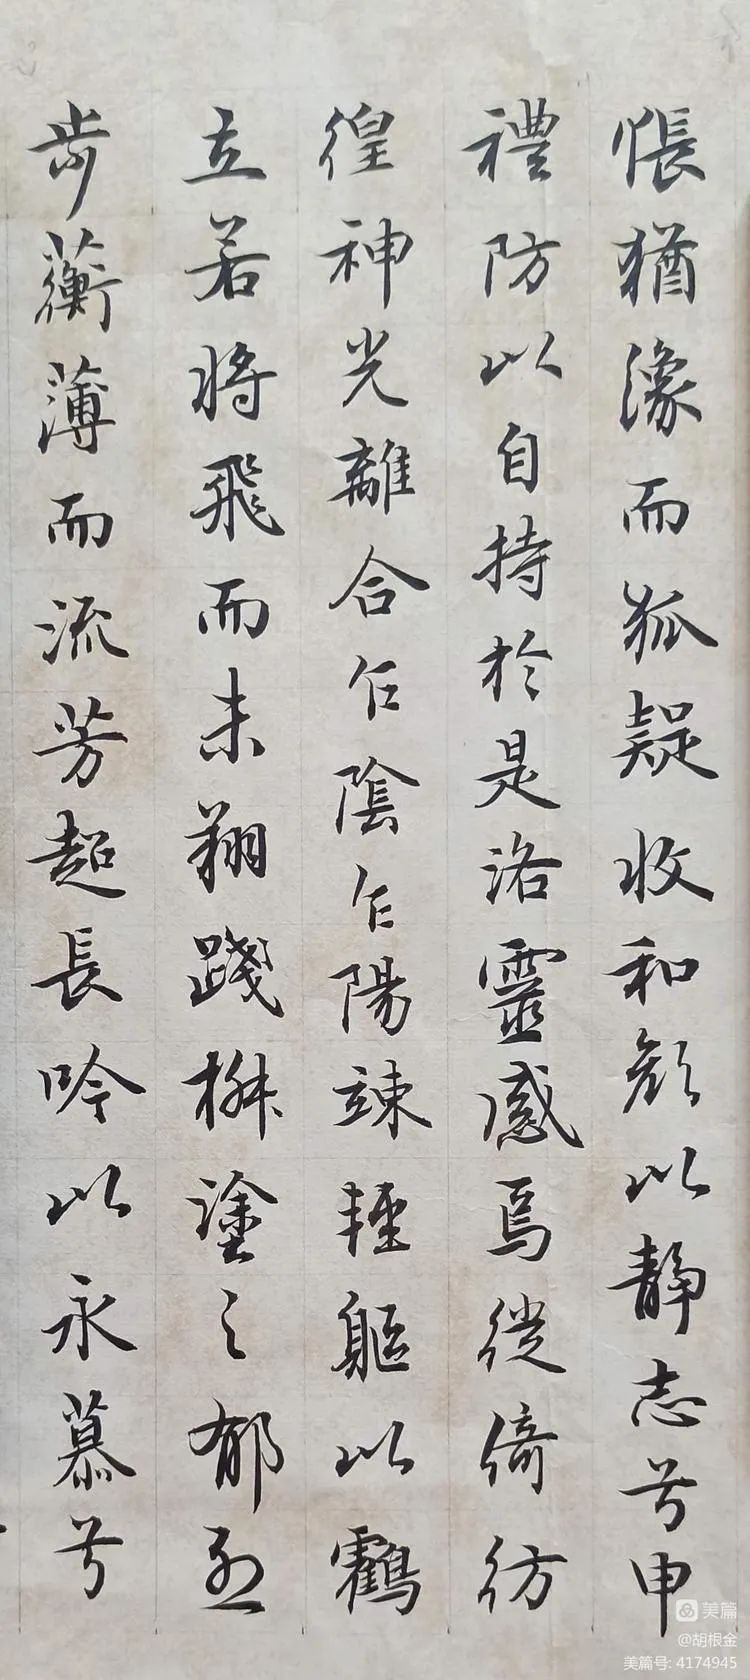 悵猶潒而狐疑收和顏以靜志兮申
禮防以自持於是洛靈感焉徙倚彷
徨神光離合乍陰乍陽竦輕軀以鶴
立若將飛而未翔踐椒塗之郁烈
步蘅薄而流芳超長吟以永慕兮
美篇
@胡根金
美篇号: 4174945